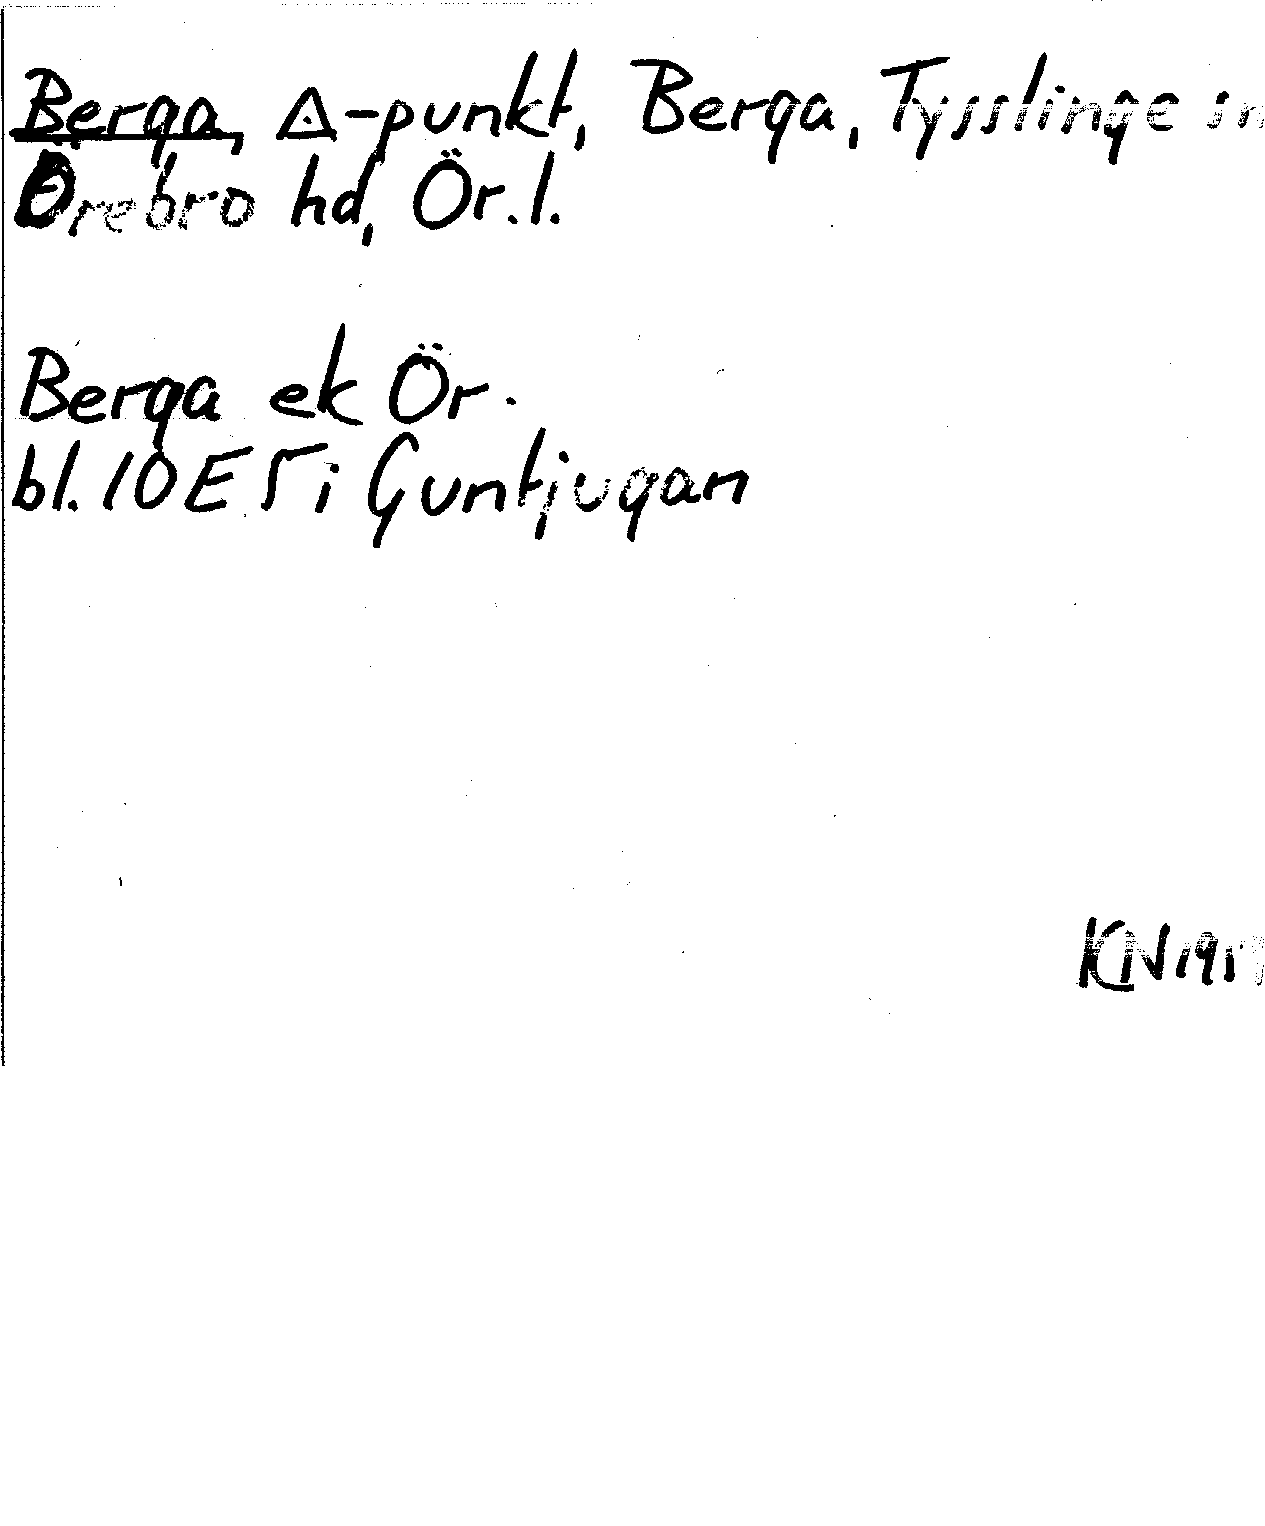 Berga, △-punkt, Berga, Tysslinge sn
Örebro hd, Ör.l.
Berga ek Ör.
bl. 10E 5i Guntjugan
KN